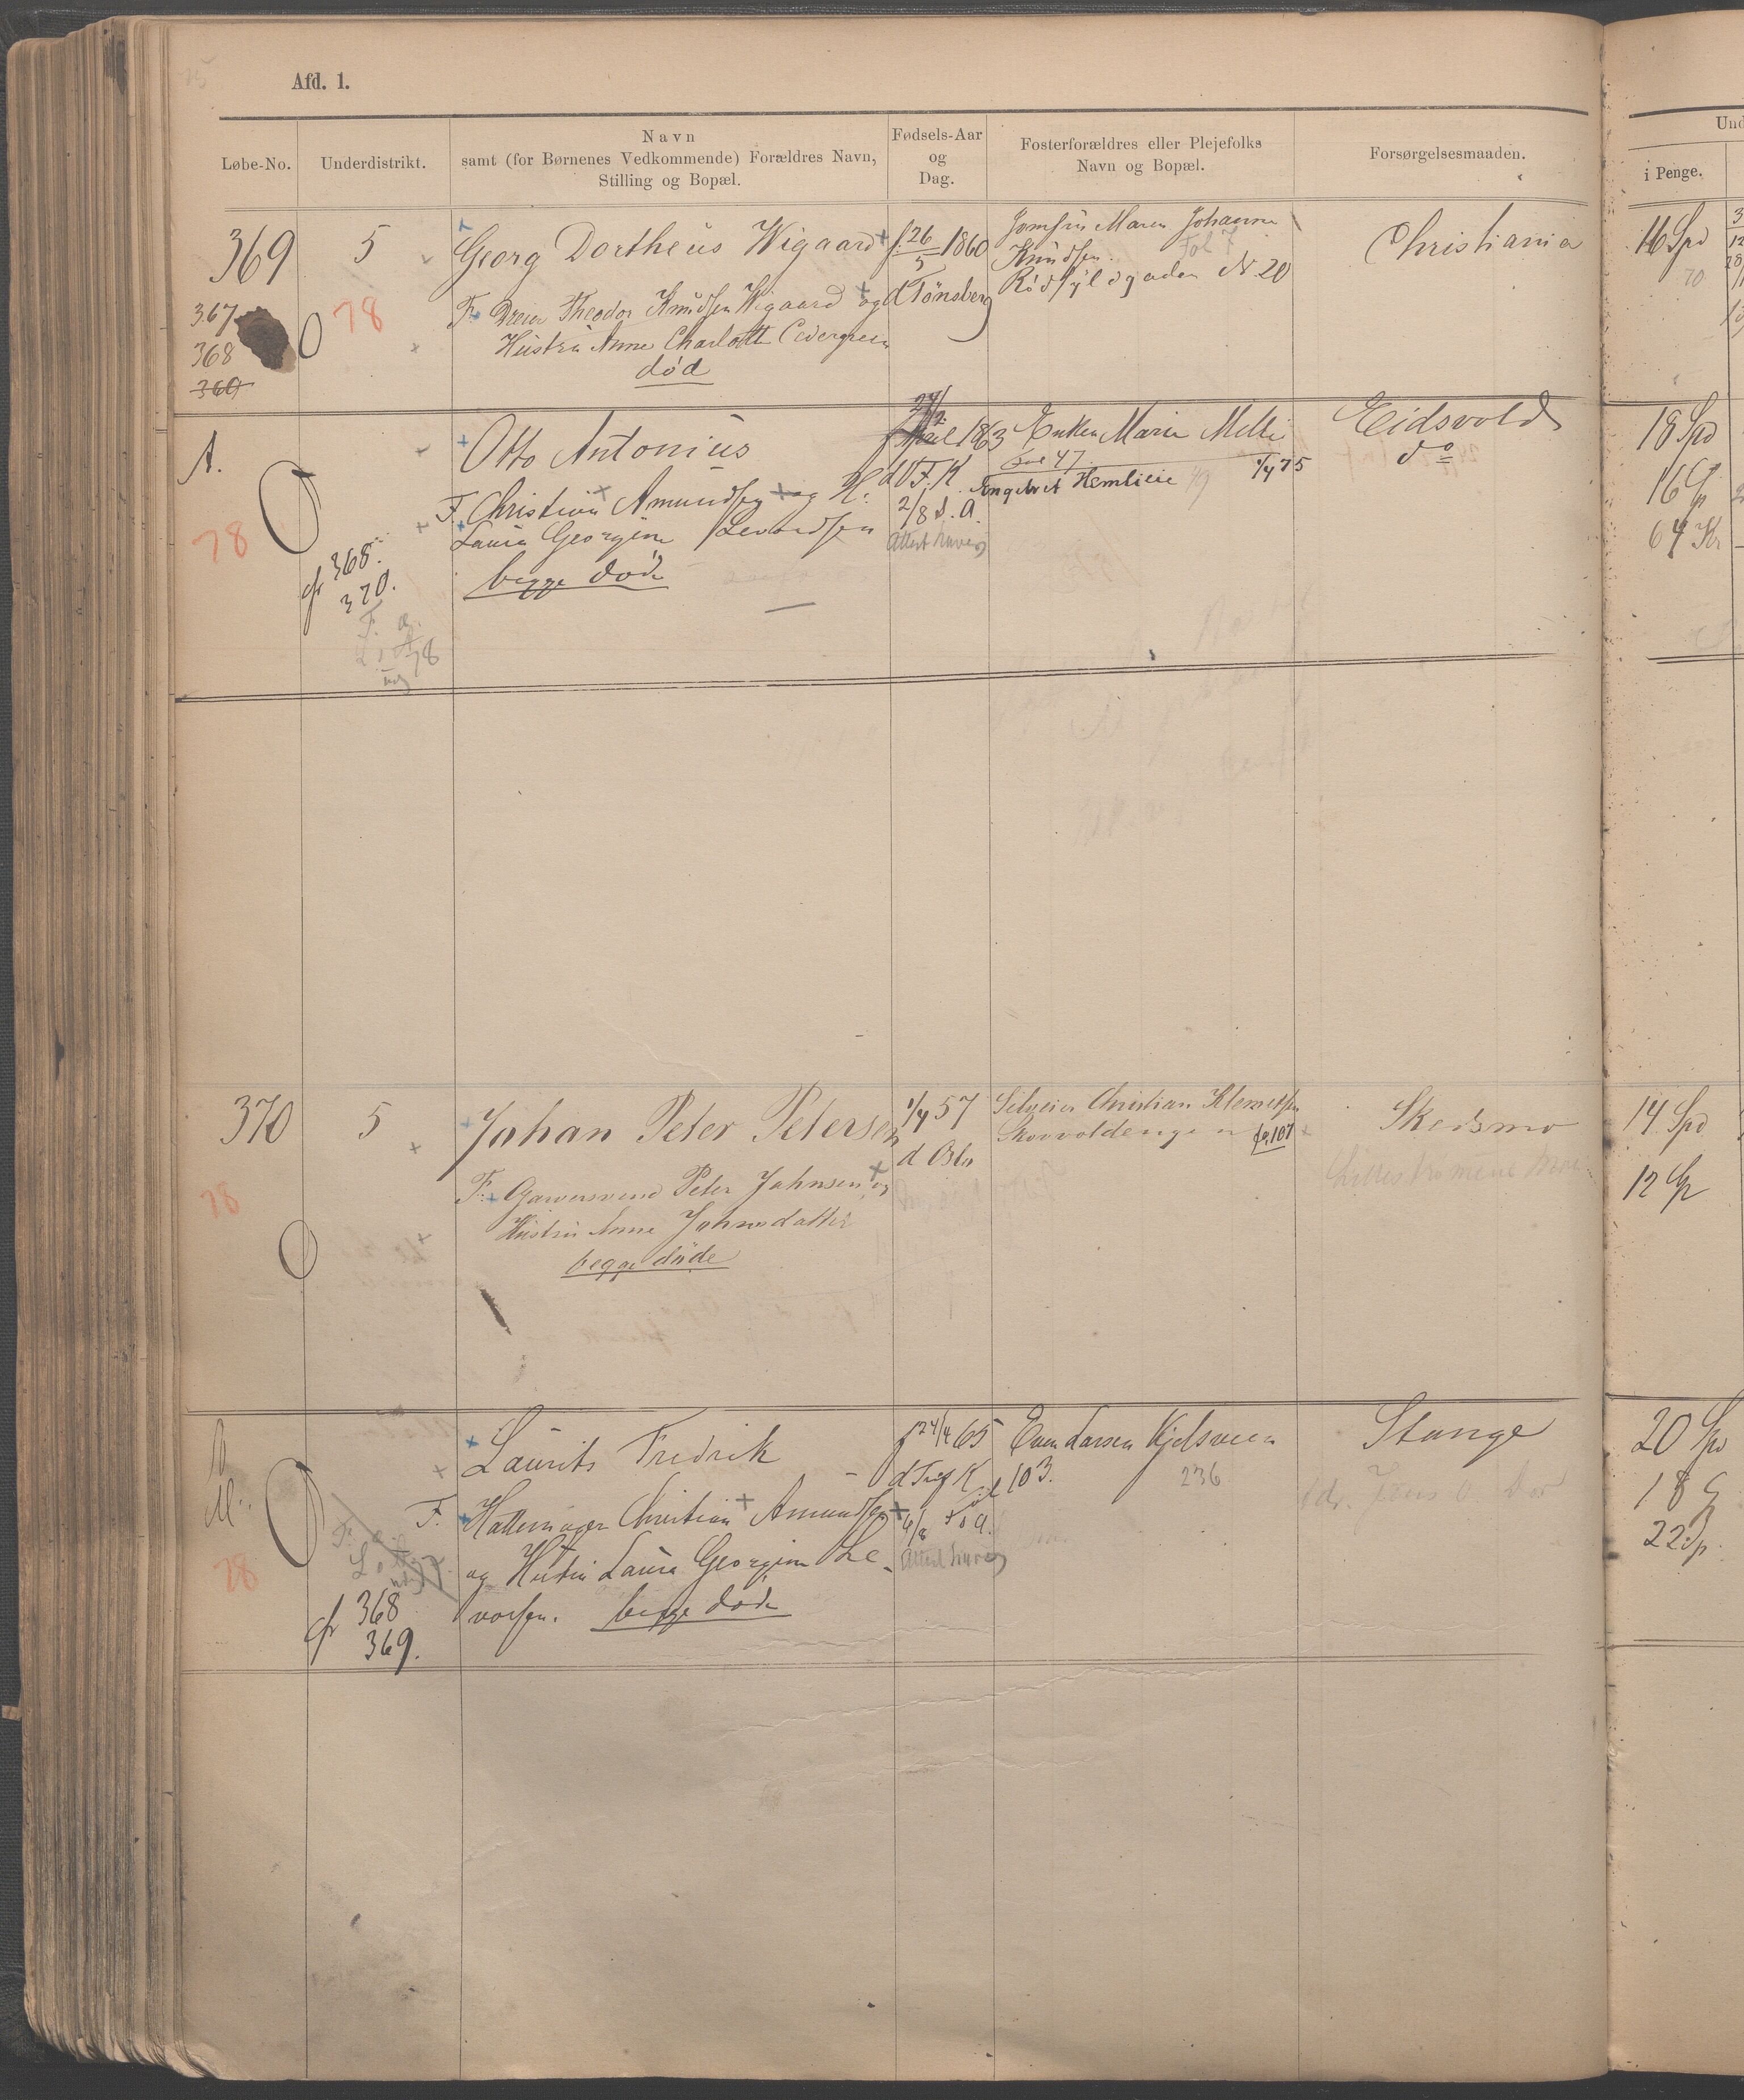 Afd. 1.
Løbe-No.
Underdistrikt.
Navn
samt (for Børnenes Vedkommende) Forældres Navn,
Stilling og Bopæl.
Fødsels-Aar
og
Dag.
Fosterforældres eller Plejefolks
Navn og Bopæl.
Forsørgelsesmaaden.
Und
i Penge.
369
367
368
360
5
78
Georg Dortheus Wigaard
F. Dreier Theodor Knudsen Wigaard og
Hustru Anne Charlotte Cedergreen
død
f. 26/5 1860
d Tönsberg
Jomfru Maren Johanne
Knudsen. Fol 7
Rödfyldgaden N. 20
Christiania
16 Spd
70
A.
78
cfr 368.
370.
F.
78
Otto Antonius
F. Christian Amundsen og H.
Laura Georgine
begge døde
27/2
f 1863
d V. F. K.
2/8 s. A.
Attest haves
Enken Marie Melbi
Fol 47.
Engebret Hemlieie 49
1/4 75
Eidsvold
do
18 Spd
16 Sp
64 Kr
370
5
78
Johan Peter Petersen
F. Garversvend Peter Johnsen og
Hustru Anne Johnsdatter
begge døde
1/4 57
d Oslo
Selveier Christian Klemetsen
Skovvoldengen fo. 107
Skedsmo
14 Spd
12 Sp
78
F.
cfr 368
369.
Laurits Fredrik
F. Hattemager Christian Amundsen
og Hustru Laura Georgine Le-
vorsen. begge døde
f 24/4 65
d Tref K
6/8 s. a.
Attest haves
Even Larsen Kjelsveen
Fol 103.
236
Stange
20 Spd
18 Sp
22 Sp.